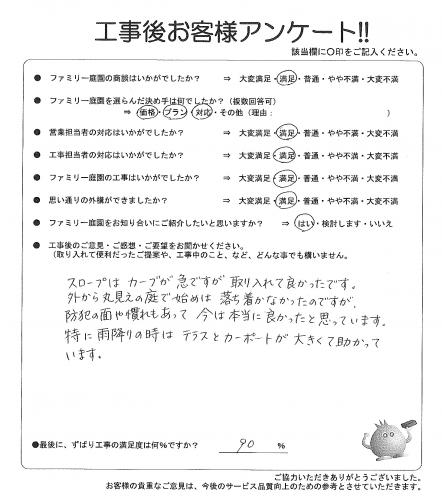 工事後お客様アンケート!!
該当欄に○印をご記入ください。
● ファミリー庭園の商談はいかがでしたか? ⇒ 大変満足・満足・普通・やや不満・大変不満
● ファミリー庭園を選らんだ決め手は何でしたか?(複数回答可)
⇒ 価格・プラン・対応・その他(理由: )
● 営業担当者の対応はいかがでしたか? ⇒ 大変満足・満足・普通・やや不満・大変不満
● 工事担当者の対応はいかがでしたか? ⇒ 大変満足・満足・普通・やや不満・大変不満
● ファミリー庭園の工事はいかがでしたか? ⇒ 大変満足・満足・普通・やや不満・大変不満
● 思い通りの外構ができましたか? ⇒ 大変満足・満足・普通・やや不満・大変不満
● ファミリー庭園をお知り合いにご紹介したいと思いますか? ⇒ はい・検討します・いいえ
● 工事後のご意見・ご感想・ご要望をお聞かせください。
(取り入れて便利だったご提案や、工事中のこと、など、どんな事でも構いません。
スロープは カーブが急ですが 取り入れて良かったです。
外から丸見えの庭で始めは 落ち着かなかったのですが、
防犯の面や慣れもあって 今は本当に良かったと思っています。
特に雨降りの時は テラスとカーポートが 大きくて助かって
います。
●最後に、ずばり工事の満足度は何%ですか? 90 %
ご協力いただきありがとうございました。
お客様の貴重なご意見は、今後のサービス品質向上のための参考とさせていただきます。